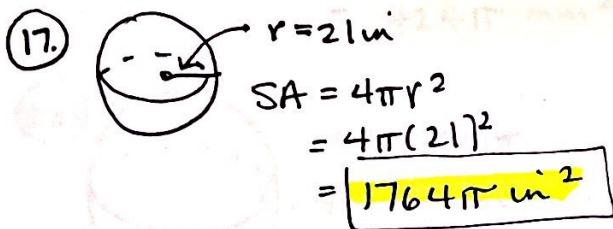 17. r = 21 in
SA = 4πr²
= 4π(21)²
= 1764π in²